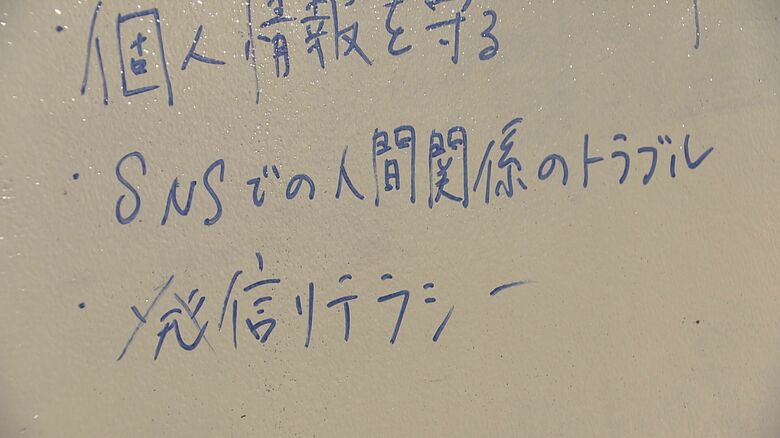 ・個人情報を守る
・SNSでの人間関係のトラブル
・発信リテラシー